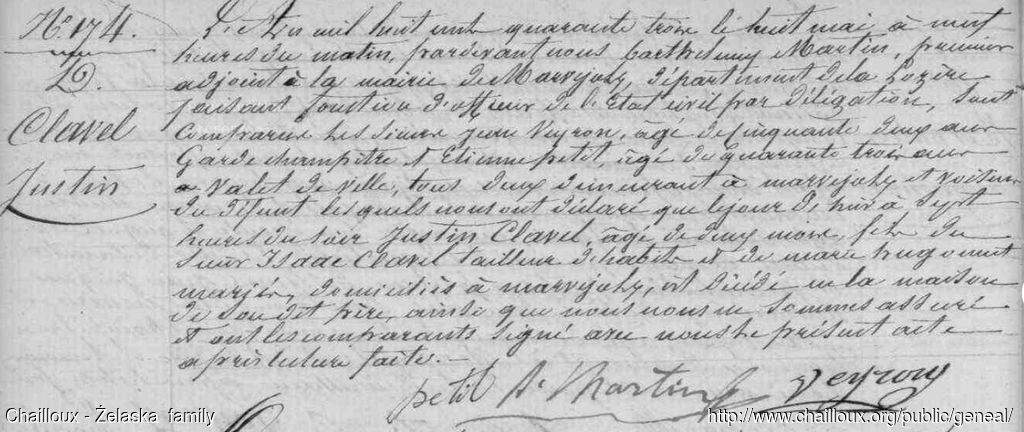 N.º 174.
D.
Clavel
Justin
L'An mil huit cent quarante trois le huit mai à neuf
heures du matin, pardevant nous Barthelemy Martin, premier
adjoint à la mairie de Marvejols, département de la Lozère
faisant fonction d'officier de l'Etat civil par délégation, sont
comparus les sieurs Jean Veyron, âgé de cinquante deux ans
Garde champêtre et Etienne petit, âgé de quarante trois ans
valet de ville, tous deux demeurant à marvejols et voisins
du défunt lesquels nous ont déclaré que le jour d'hier à sept
heures du soir Justin Clavel, âgé de deux mois, fils du
sieur Isaac Clavel tailleur d'habits et de marie hugonnet
mariés, domiciliés à marvejols, est décédé en la maison
de son dit père, ainsi que nous nous en sommes assuré
et ont les comparants signé avec nous le présent acte
après lecture faite.
petit Martin Veyron
Chailloux - Żelaska family
http://www.chailloux.org/public/geneal/